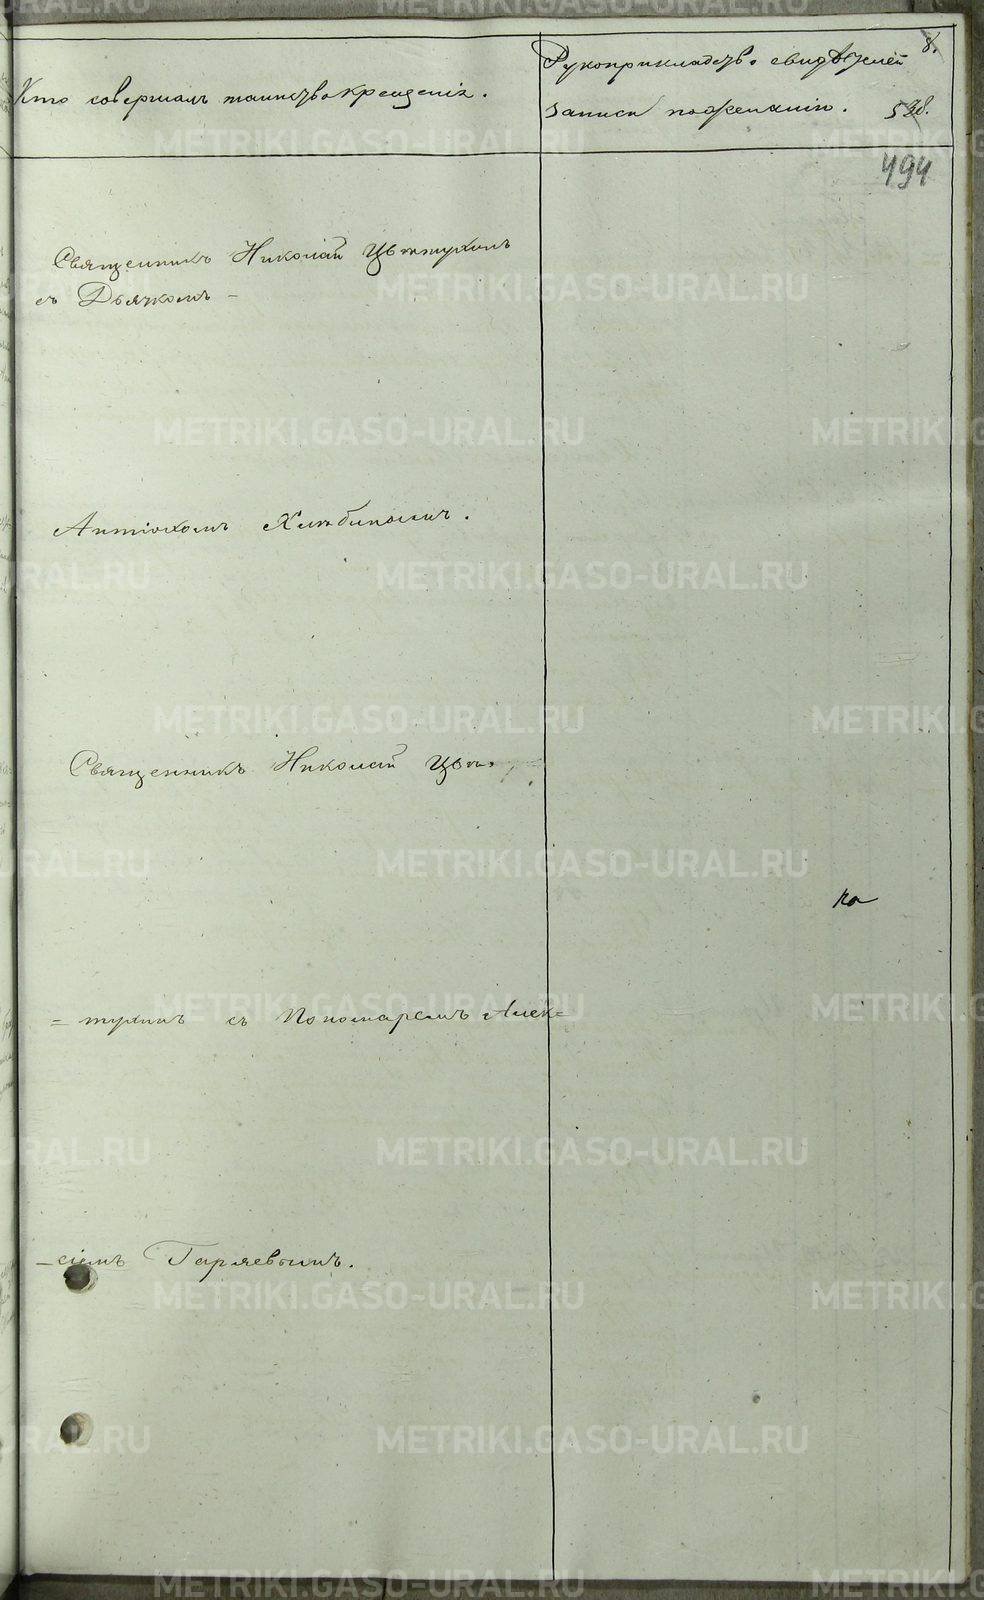 8.
Кто совершалъ таинство крещенія.
Рукоприкладство свидѣтелей
записи по желанію.
494
Священникъ Николай Цвѣтухинъ
съ Дьячкомъ –
Антіохомъ Хлѣбинымъ.
Священникъ Николай Цвѣ=
= тухинъ съ Пономаремъ Алек=
–сіемъ Гаряевымъ.
METRIKI.GASO-URAL.RU